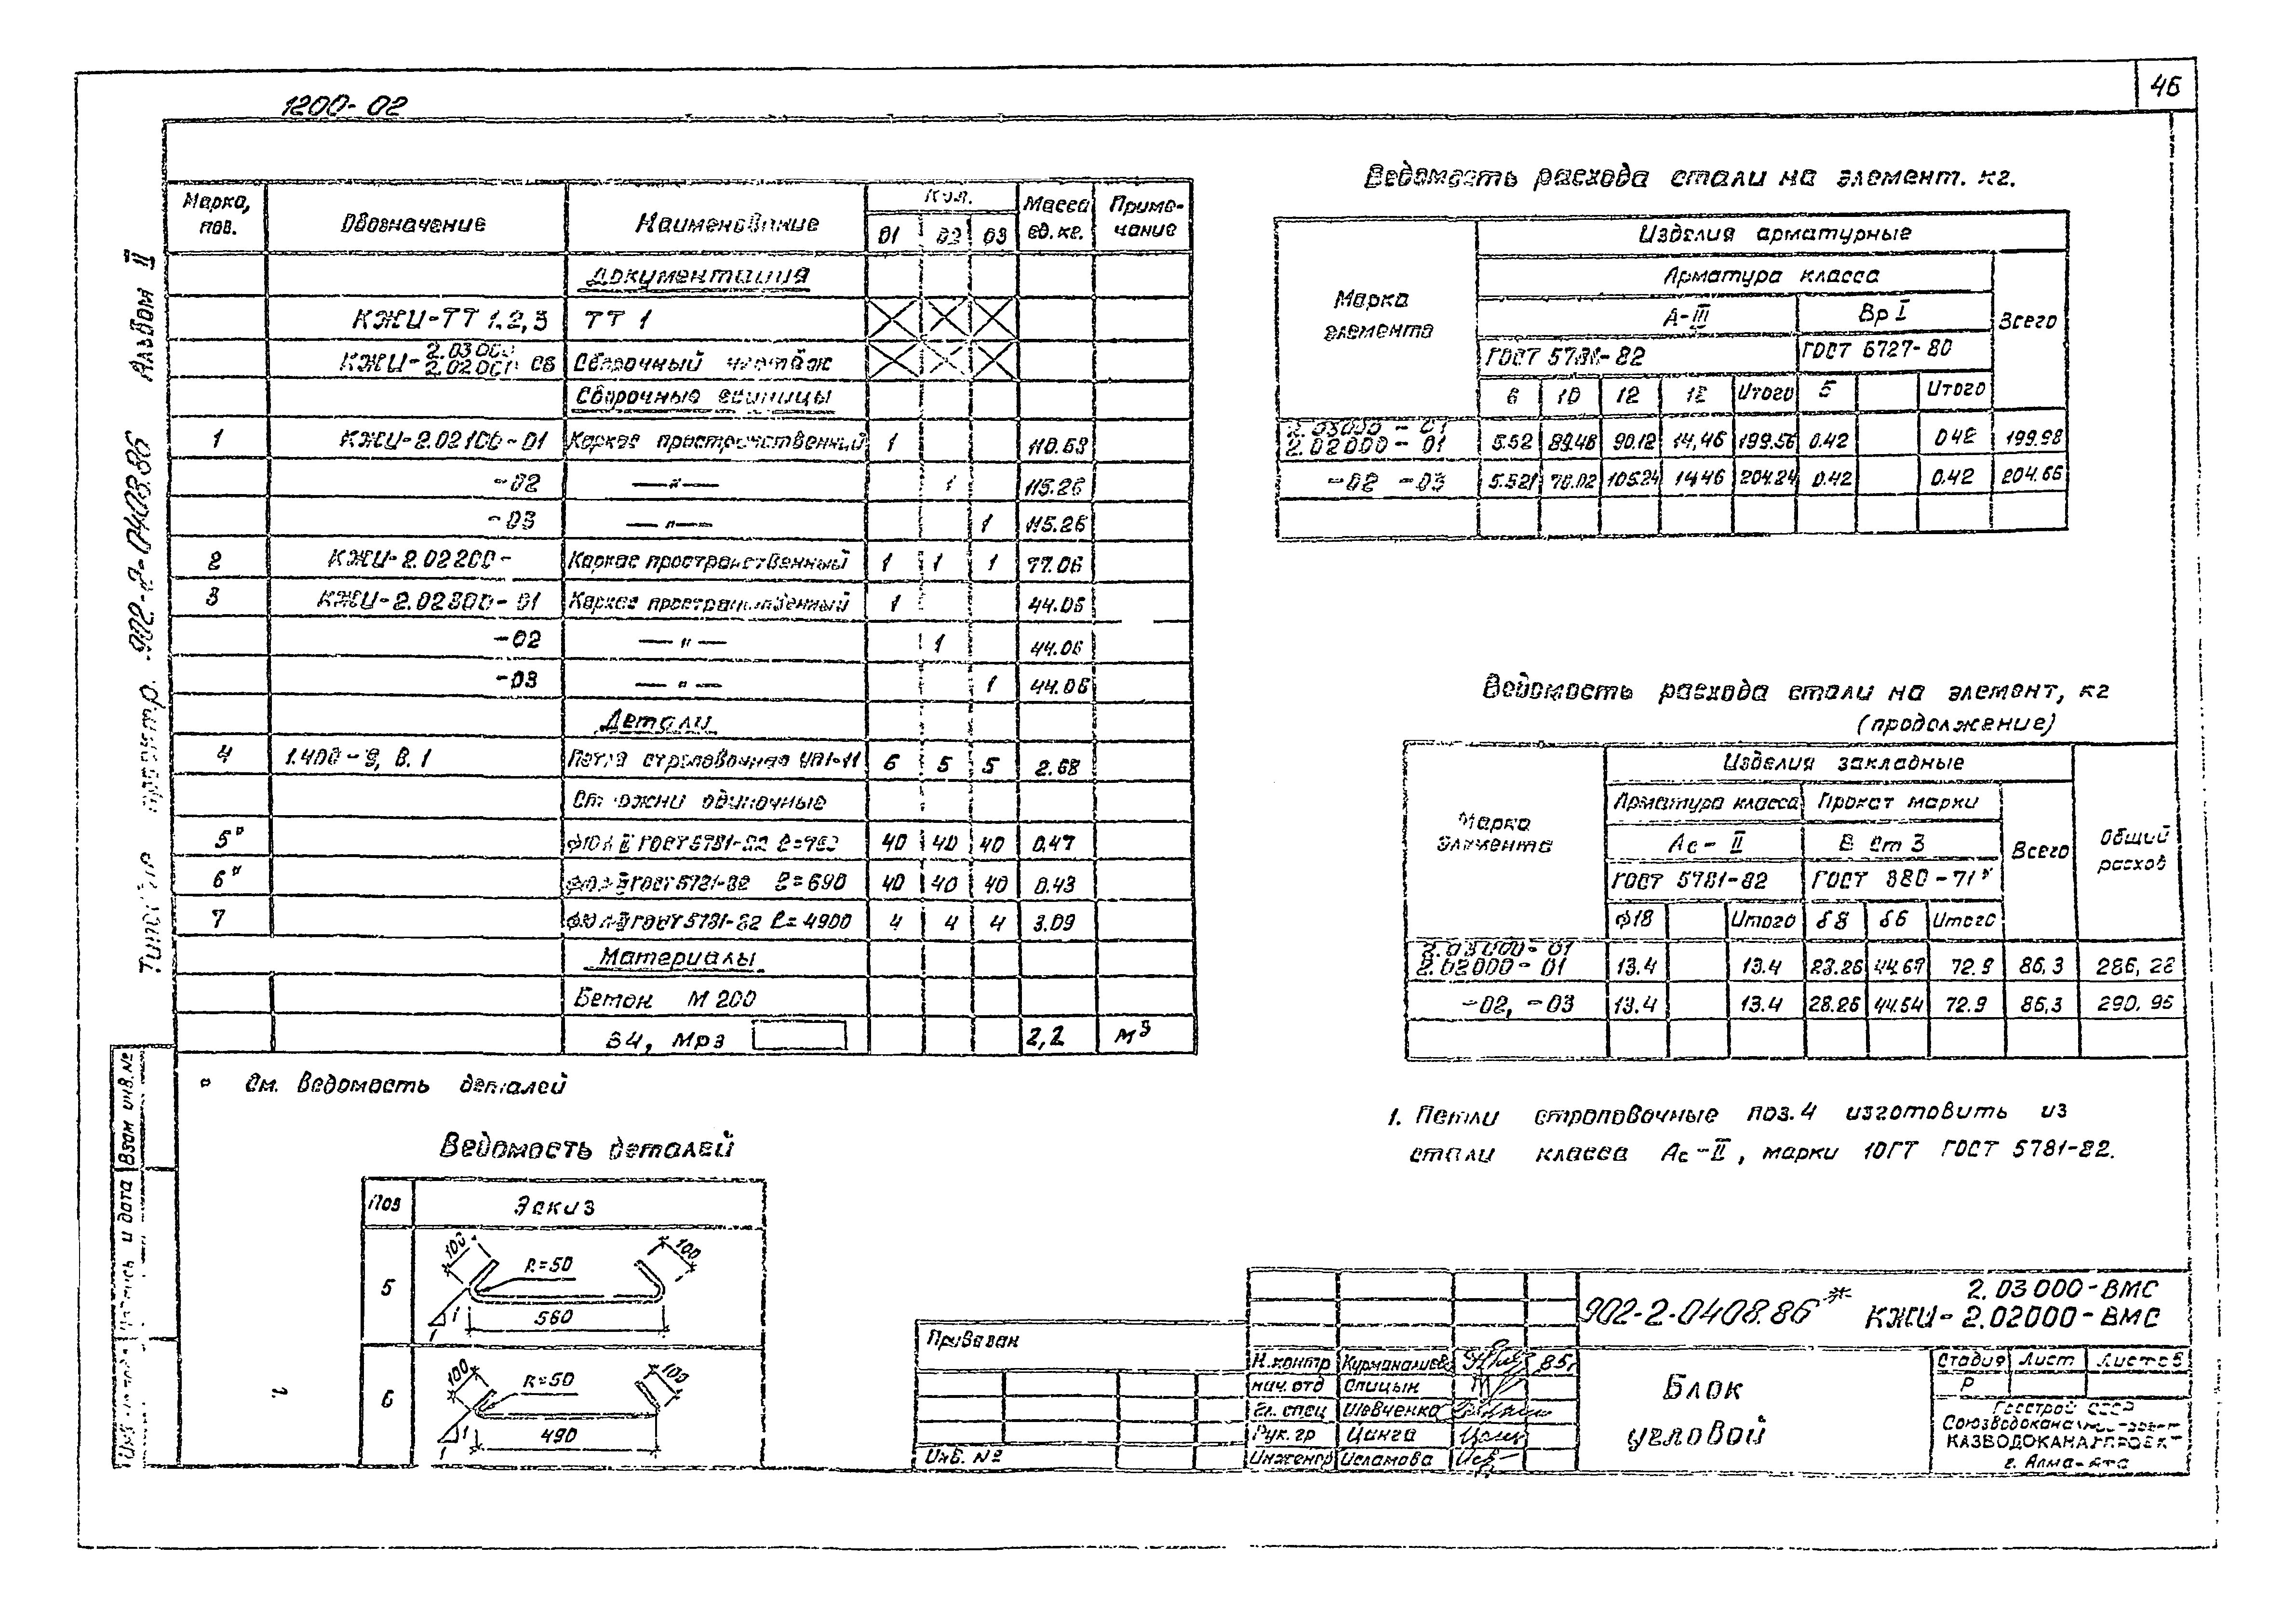 46
1200-02
Альбом II
Типовой проект 902-2-0408.86
Марка, поз. Обозначение Наименование Кол. Масса ед. кг. Приме-чание
01 02 03
Документация
КЖИ-ТТ 1.2,3 ТТ 1
КЖИ-2.03000 2.02000 СБ Сборочный чертёж
Сборочные единицы
1 КЖИ-2.02100-01 Каркас пространственный 1 110.63
-02 —"— 1 115.26
-03 —"— 1 115.26
2 КЖИ-2.02200- Каркас пространственный 1 1 1 77.06
3 КЖИ-2.02300-01 Каркас пространственный 1 44.06
-02 —"— 1 44.06
-03 —"— 1 44.06
Детали
4 1.400-9, В.1 Петля строповочная УП1-11 6 5 5 2.68
Стержни одиночные
5* ГОСТ 5781-82 40 40 40 0.47
6* ГОСТ 5781-82 ℓ=690 40 40 40 0.43
7 ГОСТ 5781-82 ℓ=4900 4 4 4 3.09
Материалы
Бетон М 200
В4, Мрз 2,2 м³
* См. Ведомость деталей
Ведомость деталей
Поз Эскиз
5 100 R=50 100 560 1 1
6 100 R=50 100 490 1 1
Ведомость расхода стали на элемент. кг.
Марка элемента Изделия арматурные
Арматура класса Всего
А-III Вр I
ГОСТ 5781-82 ГОСТ 6727-80
6 10 12 Итого 5 Итого
2.03000-01
2.02000-01 5.52 89.46 90.12 14,46 199.56 0.42 0.42 199.98
-02 -03 5.521 105.24 14.46 204.24 0.42 0.42 204.66
Ведомость расхода стали на элемент, кг
(продолжение)
Марка элемента Изделия закладные Общий расход
Арматура класса Прокат марки Всего
Ас-II В Ст 3
ГОСТ 5781-82 ГОСТ 380-71*
ф18 Итого δ8 δ6 Итого
2.03000-01
2.02000-01 13.4 13.4 72.9 86,3 286,28
-02, -03 13.4 13.4 28.26 44.64 72.9 86,3 290.96
1. Петли строповочные поз.4 изготовить из
стали класса Ас-II, марки 10ГТ ГОСТ 5781-82.
Взам инв.№
Подпись и дата
Привязан
Инв. №
902-2-0408.86 *
2.03000-ВМС
КЖИ-2.02000-ВМС
Н.контр Курманалиев 85г
нач. отд Спицын
Гл. спец Шевченко
Рук. гр Цанга
Инженер Исламова
Блок
угловой
Стадия Лист Листов
Р
Госстрой СССР
Союзводоканалпроект
КАЗВОДОКАНАЛПРОЕКТ
г. Алма-Ата